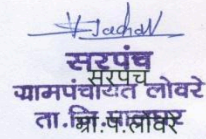 सरपंच
सरपंच
ग्रामपंचायत लोवरे
ता.जि. पालघर
ग्रा.पं.लोवरे